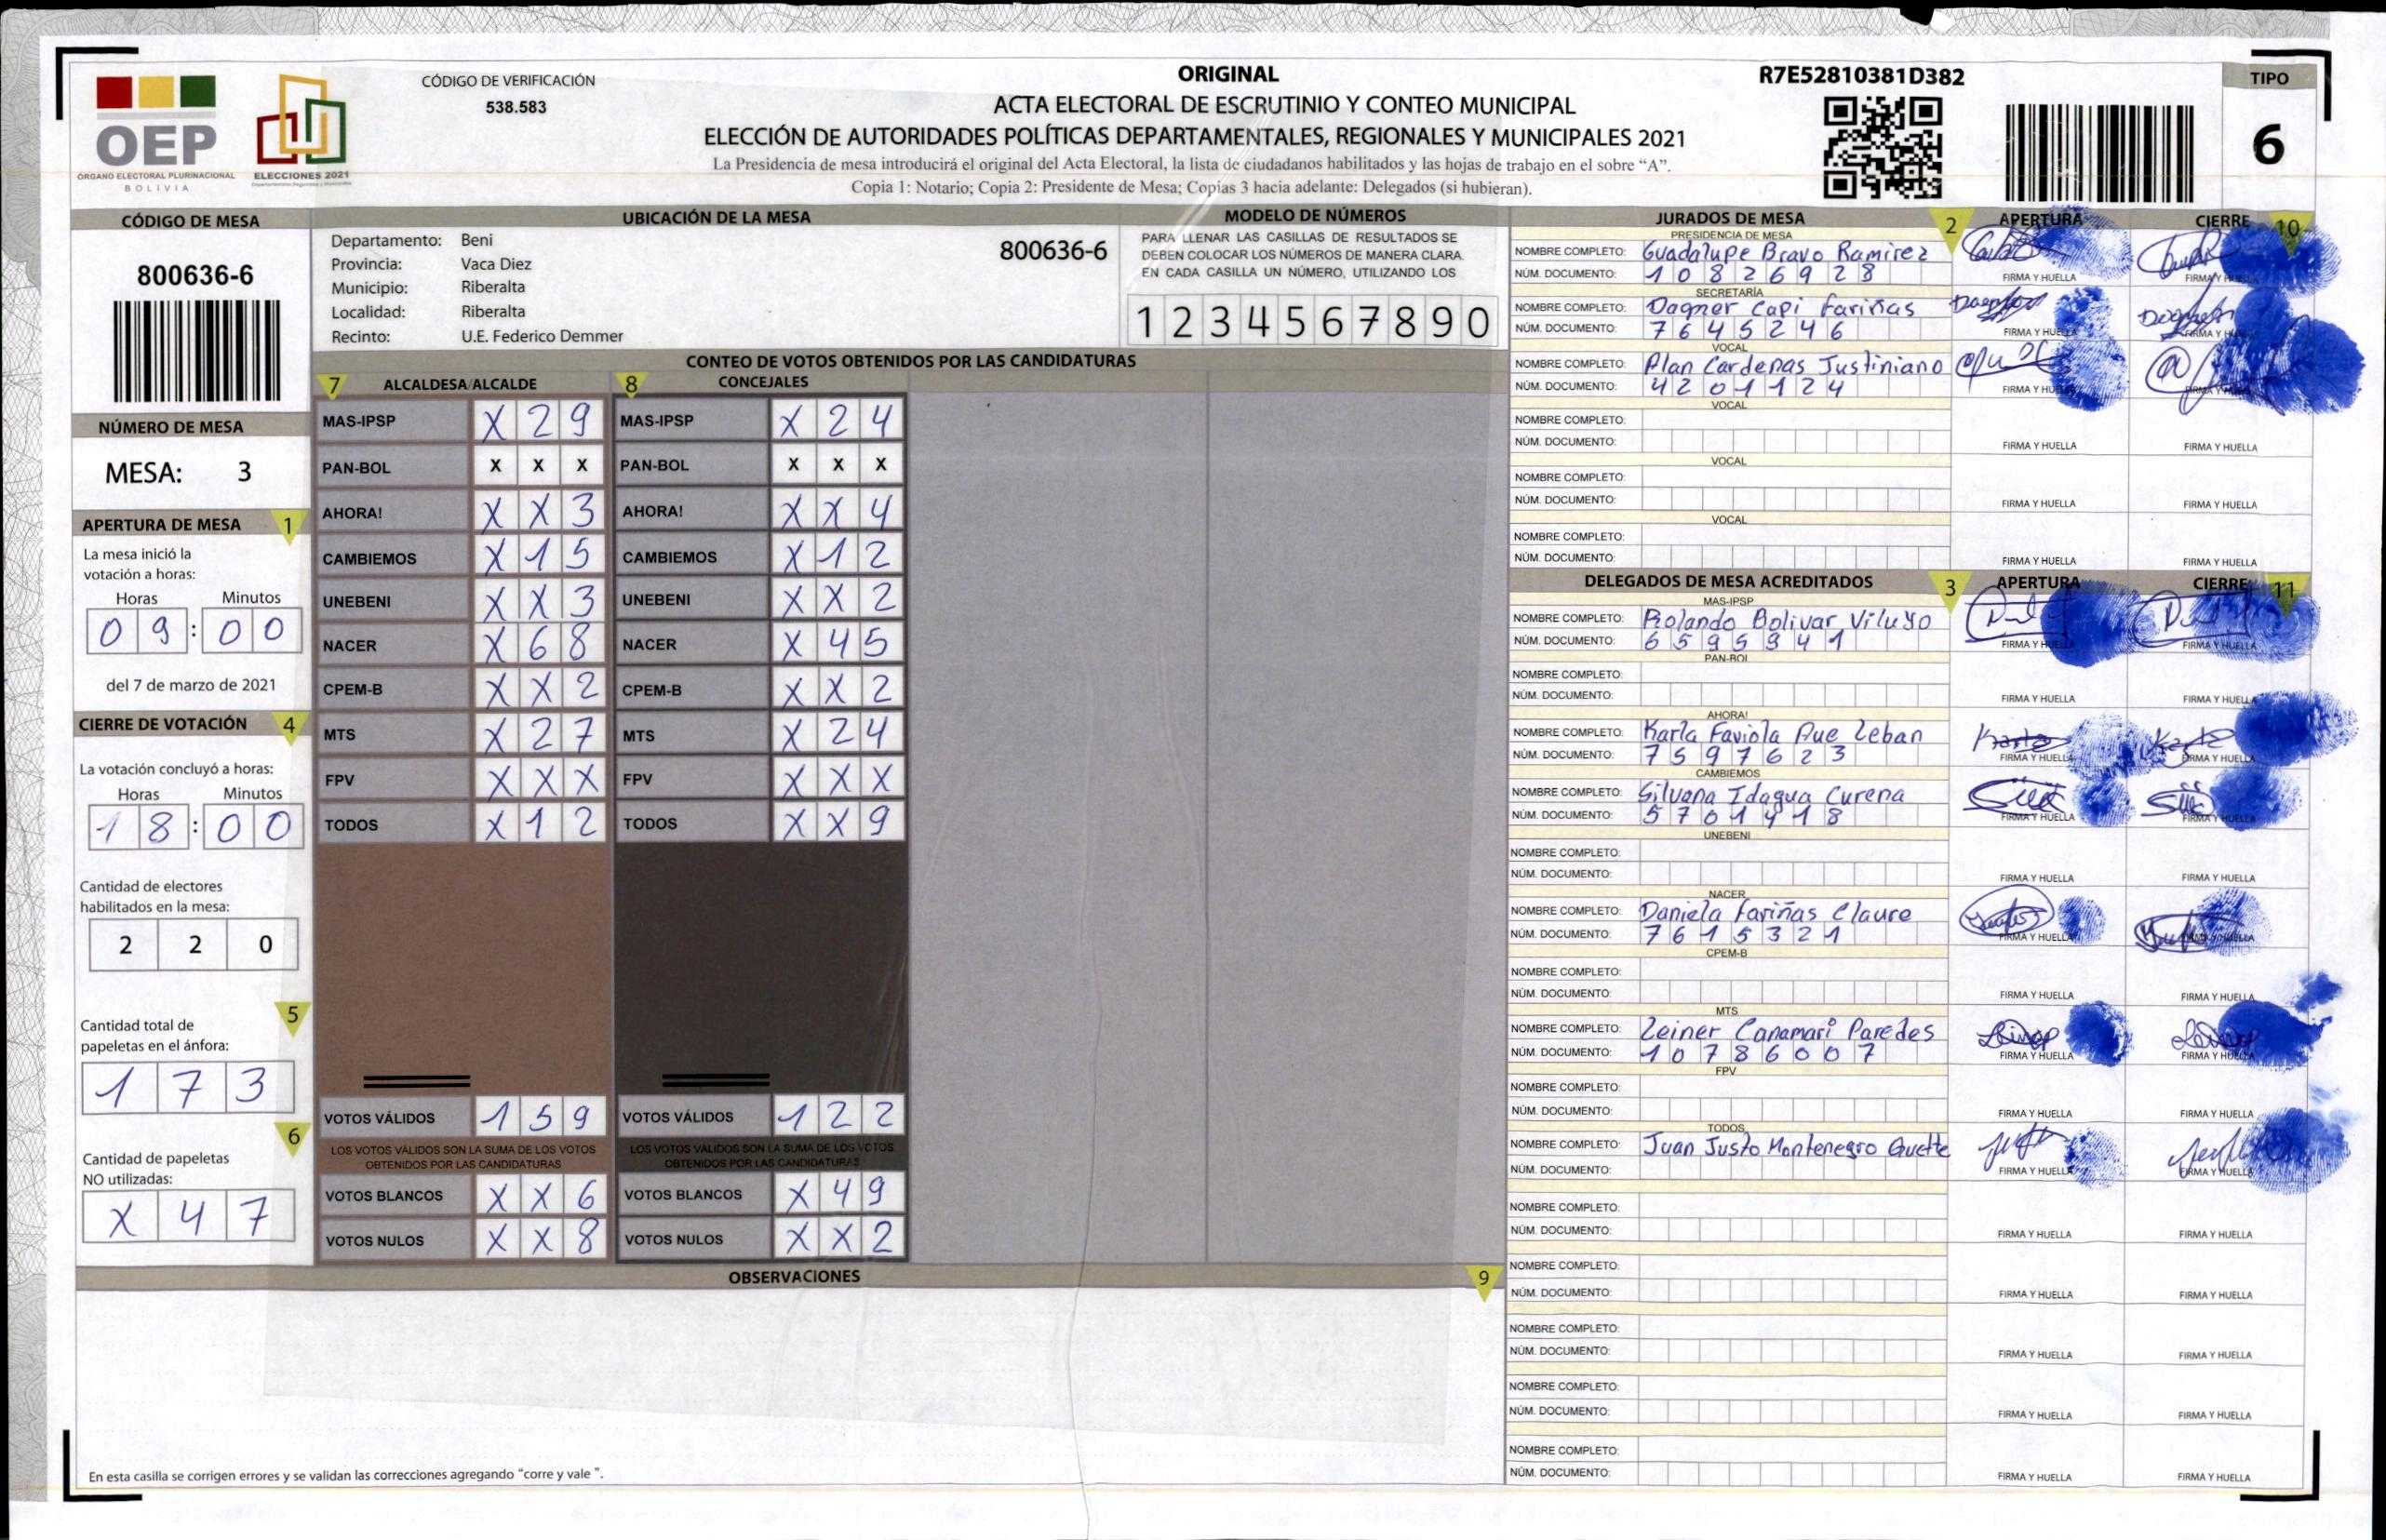 CÓDIGO DE VERIFICACIÓN
538.583
OEP
ÓRGANO ELECTORAL PLURINACIONAL
BOLIVIA
ELECCIONES 2021
ORIGINAL
ACTA ELECTORAL DE ESCRUTINIO Y CONTEO MUNICIPAL
ELECCIÓN DE AUTORIDADES POLÍTICAS DEPARTAMENTALES, REGIONALES Y MUNICIPALES 2021
La Presidencia de mesa introducirá el original del Acta Electoral, la lista de ciudadanos habilitados y las hojas de trabajo en el sobre “A”.
Copia 1: Notario; Copia 2: Presidente de Mesa; Copias 3 hacia adelante: Delegados (si hubieran).
R7E52810381D382
TIPO
6
CÓDIGO DE MESA
800636-6
NÚMERO DE MESA
MESA: 3
APERTURA DE MESA 1
La mesa inició la
votación a horas:
Horas Minutos
0 9 : 0 0
del 7 de marzo de 2021
CIERRE DE VOTACIÓN 4
La votación concluyó a horas:
Horas Minutos
1 8 : 0 0
Cantidad de electores
habilitados en la mesa:
2 2 0
5
Cantidad total de
papeletas en el ánfora:
1 7 3
6
Cantidad de papeletas
NO utilizadas:
X 4 7
UBICACIÓN DE LA MESA
Departamento: Beni
800636-6
Provincia: Vaca Diez
Municipio: Riberalta
Localidad: Riberalta
Recinto: U.E. Federico Demmer
MODELO DE NÚMEROS
PARA LLENAR LAS CASILLAS DE RESULTADOS SE
DEBEN COLOCAR LOS NÚMEROS DE MANERA CLARA.
EN CADA CASILLA UN NÚMERO, UTILIZANDO LOS
1 2 3 4 5 6 7 8 9 0
CONTEO DE VOTOS OBTENIDOS POR LAS CANDIDATURAS
7 ALCALDESA/ALCALDE 8 CONCEJALES
MAS-IPSP X 2 9 MAS-IPSP X 2 4
PAN-BOL X X X PAN-BOL X X X
AHORA! X X 3 AHORA! X X 4
CAMBIEMOS X 1 5 CAMBIEMOS X 1 2
UNEBENI X X 3 UNEBENI X X 2
NACER X 6 8 NACER X 4 5
CPEM-B X X 2 CPEM-B X X 2
MTS X 2 7 MTS X 2 4
FPV X X X FPV X X X
TODOS X 1 2 TODOS X X 9
VOTOS VÁLIDOS 1 5 9 VOTOS VÁLIDOS 1 2 2
LOS VOTOS VÁLIDOS SON LA SUMA DE LOS VOTOS LOS VOTOS VÁLIDOS SON LA SUMA DE LOS VOTOS
OBTENIDOS POR LAS CANDIDATURAS OBTENIDOS POR LAS CANDIDATURAS
VOTOS BLANCOS X X 6 VOTOS BLANCOS X 4 9
VOTOS NULOS X X 8 VOTOS NULOS X X 2
OBSERVACIONES 9
En esta casilla se corrigen errores y se validan las correcciones agregando “corre y vale ”.
JURADOS DE MESA 2 APERTURA CIERRE 10
PRESIDENCIA DE MESA
NOMBRE COMPLETO: Guadalupe Bravo Ramirez
NÚM. DOCUMENTO: 1 0 8 2 6 9 2 8 FIRMA Y HUELLA FIRMA Y HUELLA
SECRETARÍA
NOMBRE COMPLETO: Dagner Capi Fariñas
NÚM. DOCUMENTO: 7 6 4 5 2 4 6 FIRMA Y HUELLA FIRMA Y HUELLA
VOCAL
NOMBRE COMPLETO: Alan Cardenas Justiniano
NÚM. DOCUMENTO: 4 2 0 1 1 2 4 FIRMA Y HUELLA FIRMA Y HUELLA
VOCAL
NOMBRE COMPLETO:
NÚM. DOCUMENTO: FIRMA Y HUELLA FIRMA Y HUELLA
VOCAL
NOMBRE COMPLETO:
NÚM. DOCUMENTO: FIRMA Y HUELLA FIRMA Y HUELLA
VOCAL
NOMBRE COMPLETO:
NÚM. DOCUMENTO: FIRMA Y HUELLA FIRMA Y HUELLA
DELEGADOS DE MESA ACREDITADOS 3 APERTURA CIERRE 11
MAS-IPSP
NOMBRE COMPLETO: Rolando Bolivar Viluyo
NÚM. DOCUMENTO: 6 5 9 5 9 4 1 FIRMA Y HUELLA FIRMA Y HUELLA
PAN-BOL
NOMBRE COMPLETO:
NÚM. DOCUMENTO: FIRMA Y HUELLA FIRMA Y HUELLA
AHORA!
NOMBRE COMPLETO: Karla Faviola Aue Leban
NÚM. DOCUMENTO: 7 5 9 7 6 2 3 FIRMA Y HUELLA FIRMA Y HUELLA
CAMBIEMOS
NOMBRE COMPLETO: Silvana Idagua Curena
NÚM. DOCUMENTO: 5 7 0 1 4 1 8 FIRMA Y HUELLA FIRMA Y HUELLA
UNEBENI
NOMBRE COMPLETO:
NÚM. DOCUMENTO: FIRMA Y HUELLA FIRMA Y HUELLA
NACER
NOMBRE COMPLETO: Daniela Fariñas Claure
NÚM. DOCUMENTO: 7 6 1 5 3 2 1 FIRMA Y HUELLA FIRMA Y HUELLA
CPEM-B
NOMBRE COMPLETO:
NÚM. DOCUMENTO: FIRMA Y HUELLA FIRMA Y HUELLA
MTS
NOMBRE COMPLETO: Leiner Canamari Paredes
NÚM. DOCUMENTO: 1 0 7 8 6 0 0 7 FIRMA Y HUELLA FIRMA Y HUELLA
FPV
NOMBRE COMPLETO:
NÚM. DOCUMENTO: FIRMA Y HUELLA FIRMA Y HUELLA
TODOS
NOMBRE COMPLETO: Juan Justo Montenegro Guette
NÚM. DOCUMENTO: FIRMA Y HUELLA FIRMA Y HUELLA
NOMBRE COMPLETO:
NÚM. DOCUMENTO: FIRMA Y HUELLA FIRMA Y HUELLA
NOMBRE COMPLETO:
NÚM. DOCUMENTO: FIRMA Y HUELLA FIRMA Y HUELLA
NOMBRE COMPLETO:
NÚM. DOCUMENTO: FIRMA Y HUELLA FIRMA Y HUELLA
NOMBRE COMPLETO:
NÚM. DOCUMENTO: FIRMA Y HUELLA FIRMA Y HUELLA
NOMBRE COMPLETO:
NÚM. DOCUMENTO: FIRMA Y HUELLA FIRMA Y HUELLA